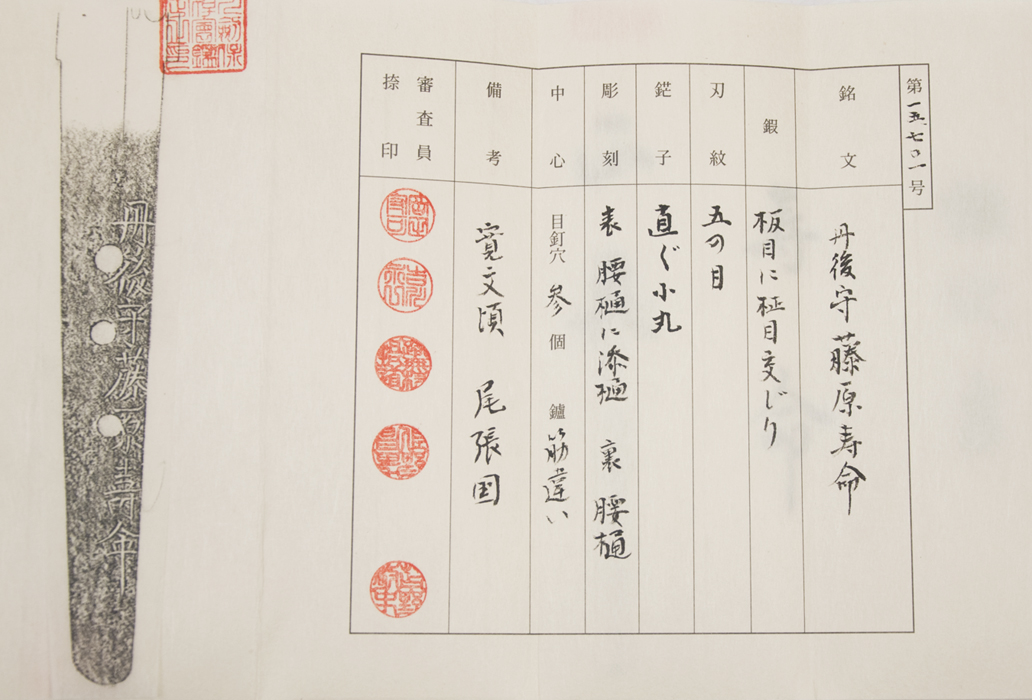 第一五七〇一号
銘文
丹後守藤原寿命
鍜
板目に柾目交じり
刃紋
五の目
鋩子
直ぐ小丸
彫刻
表 腰樋に添樋 裏 腰樋
中心
目釘穴 参 個 鑢 筋違い
備考
寛文頃 尾張国
審査員
捺印
丹後守藤原寿命